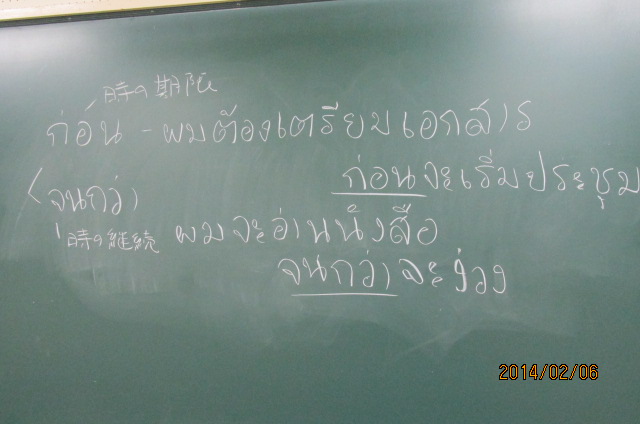 時の期限
ก่อน - ผมต้องเตรียมเอกสาร
ก่อนจะเริ่มประชุม
จนกว่า
時の継続 ผมจะอ่านนังสือ
จนกว่าจะง่วง
2014/02/06